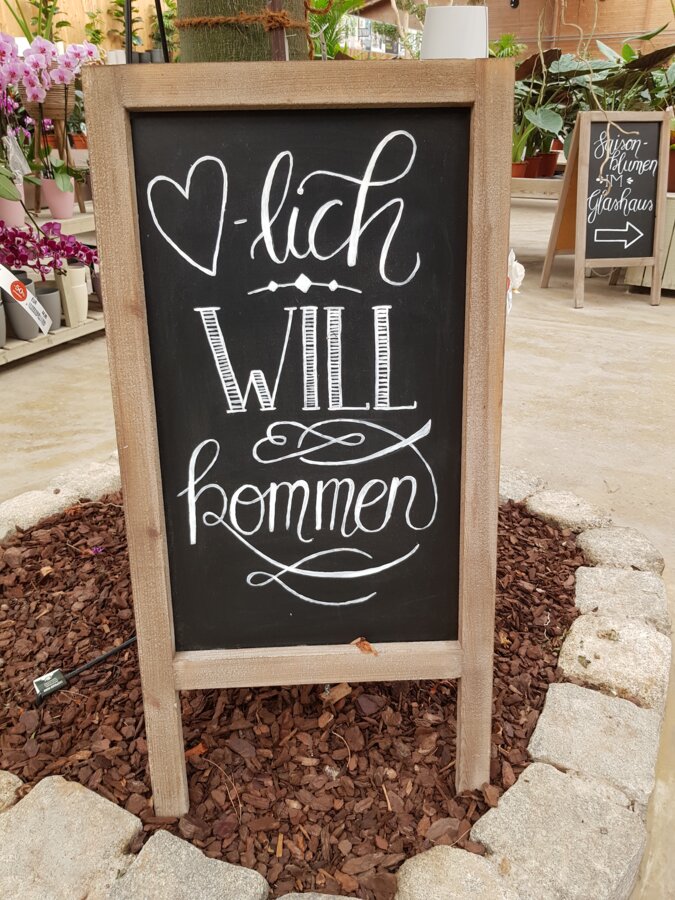 ♡-lich
WILL
kommen
Saison-
blumen
IM
Glashaus